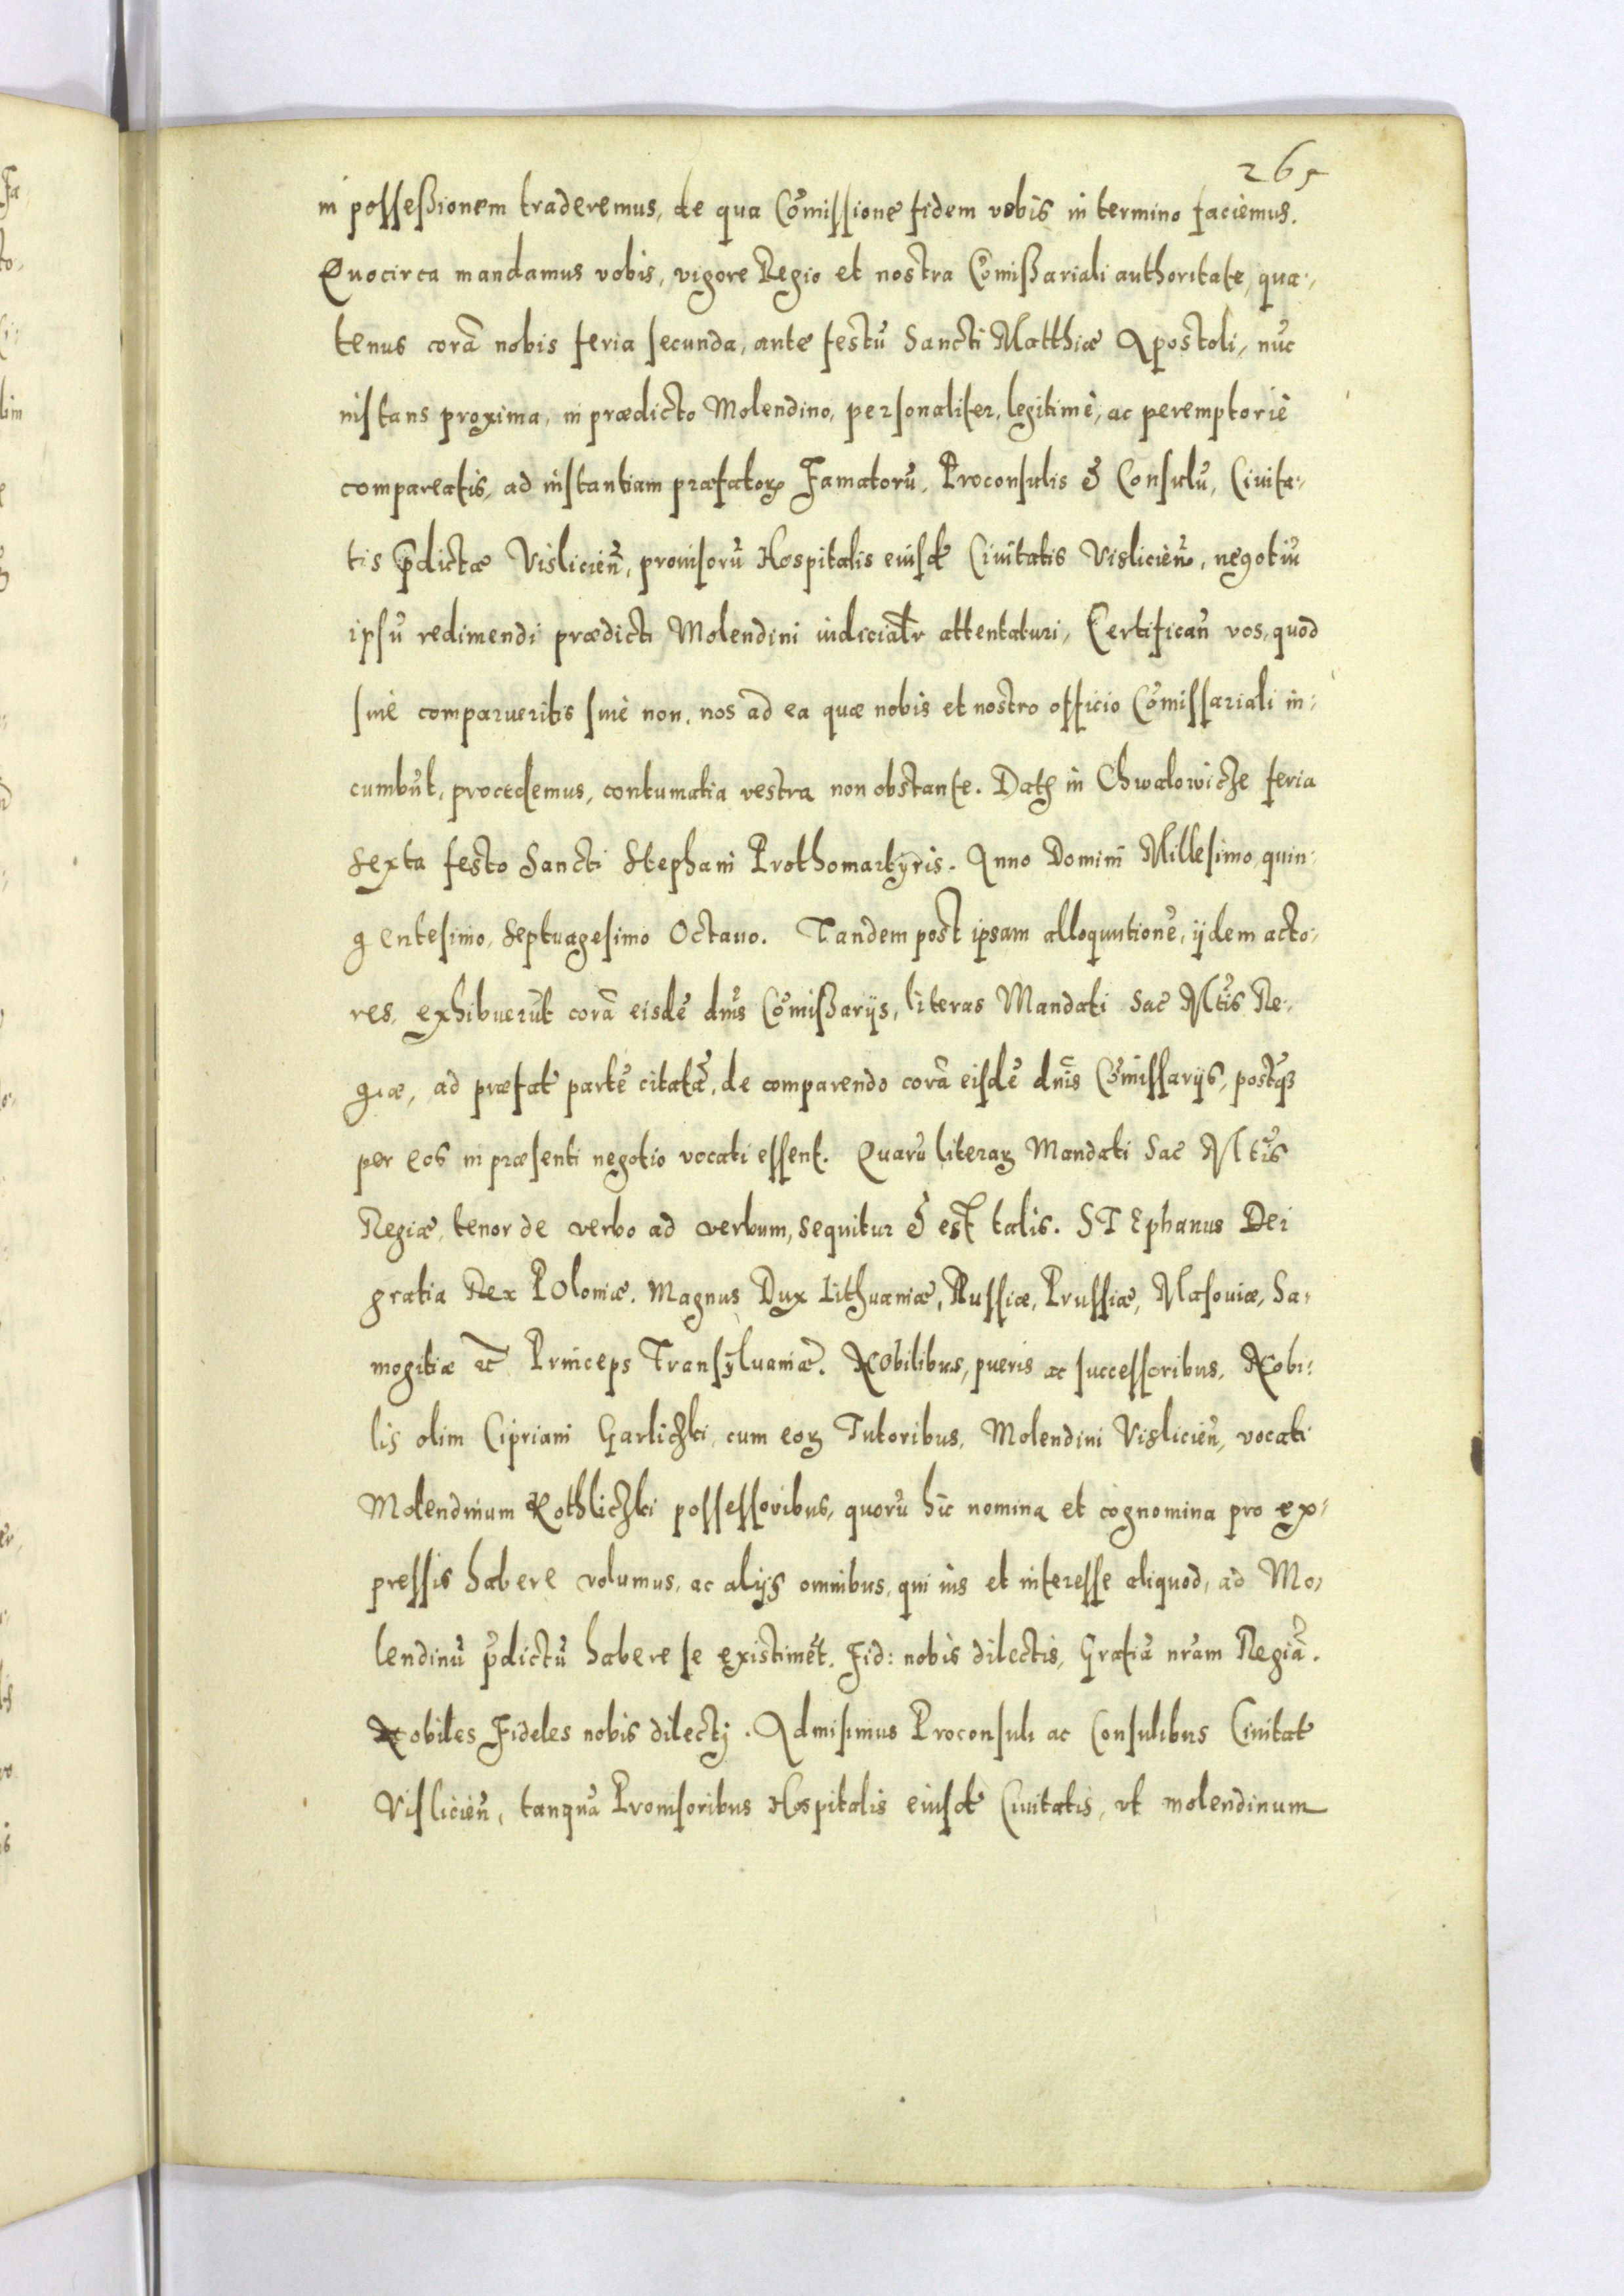 265
in possessionem traderemus, de qua Cõmissione fidem vobis in termino faciemus.
Quocirca mandamus vobis, vigore Regio et nostra Cõmissariali authoritate, qua-
tenus corã nobis feria secunda, ante festũ Sancti Matthiæ Apostoli, nũc
instans proxima, in prædicto Molendino, personaliter, legitimè, ac peremptoriè
compareatis, ad instantiam præfatoꝝ Famatorũ, Proconsulis & Consulũ, Civita-
tis p̃dictæ Vislicieñ, prouisorũ Hospitalis eiusd Ciuitatis Vislicieñ, negotiũ
ipsũ redimendi prædicti Molendini iudicialr attentaturi, Certificañ vos, quod
siuè comparueritis siuè non, nos ad ea quæ nobis et nostro officio Cõmissariali in-
cumbũt, procedemus, contumatia vestra non obstante. Datꝫ in Chwalowicze feria
Sexta festo Sancti Stephani Prothomartyris. Anno Domini Millesimo, quin-
gentesimo, Septuagesimo Octauo. Tandem post ipsam alloquutionẽ, ijdem acto-
res, exhibuerũt corã eisdẽ dnis Cõmissarijs, literas Mandati Sac Mtis Re-
giæ, ad præfat partẽ citatã, de comparendo corã eisdẽ dnis Cõmissarijs, postqȝ
per eos in præsenti negotio vocati essent. Quarũ literaꝝ Mandati Sac Mtis
Regiæ, tenor de verbo ad verbum, sequitur & est talis. STEphanus Dei
gratia Rex POloniæ, Magnus Dux Lithuaniæ, Russiæ, Prussiæ, Masouiæ, Sa-
mogitiæ ec Princeps Transÿluaniæ. NObilibus, pueris ac successoribus, Nobi-
lis olim Cipriani Garliczki, cum eoꝝ Tutoribus, Molendini Vislicieñ, vocati
Molendinum Rothliczki possessoribus, quorũ hic nomina et cognomina pro ex-
pressis habere volumus, ac alijs omnibus, qui ius et interesse aliquod, ad Mo-
lendinũ p̃dictũ habere se existimẽt. Fid: nobis dilectis, Gratiã nr̃am Regiã.
Nobiles Fideles nobis dilectj. Admisimus Proconsuli ac Consulibus Ciuitat
Vislicieñ, tanquã Prouisoribus Hospitalis eiusd Ciuitatis, vt molendinum